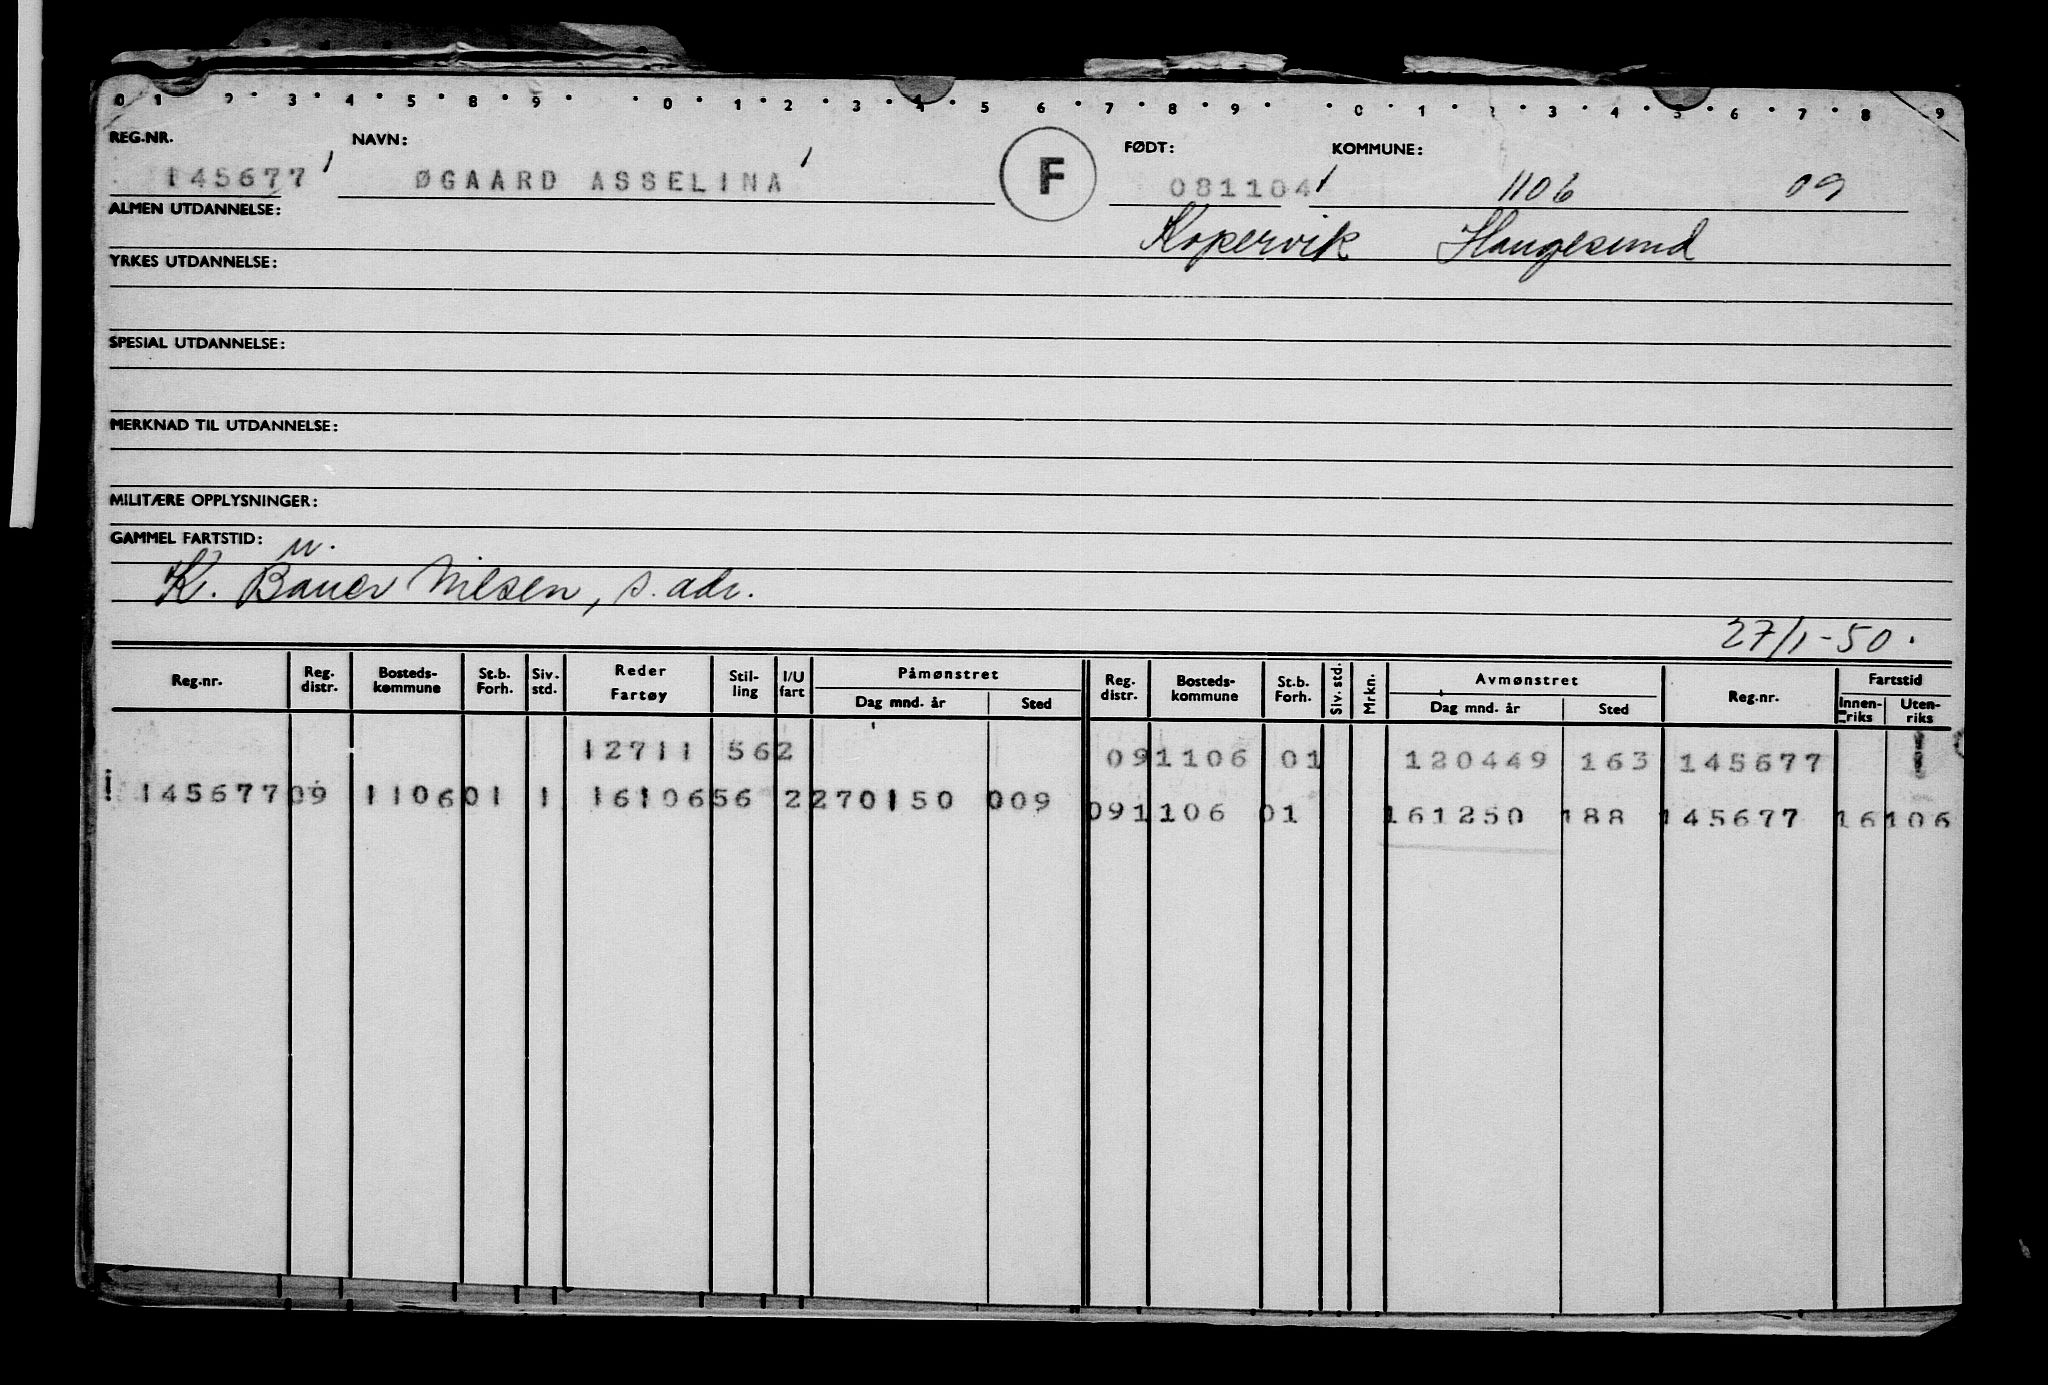 0 1 2 3 4 5 8 9 0 1 2 3 4 5 6 7 8 9 0 1 2 3 4 5 6 7 8 9
REG.NR. NAVN: F FØDT: KOMMUNE:
145677 ØGAARD ASSELINA 081104 1106 09
ALMEN UTDANNELSE: Kopervik Haugesund
YRKES UTDANNELSE:
SPESIAL UTDANNELSE:
MERKNAD TIL UTDANNELSE:
MILITÆRE OPPLYSNINGER:
GAMMEL FARTSTID:
K. Bauer Nilsen, s. adr.
27/1-50.
Reg.nr. Reg. distr. Bosteds-kommune St.b. Forh. Siv. std. Reder Fartøy Stil-ling I/U fart Påmønstret Dag mnd. år Sted Reg. distr. Bosteds-kommune St.b. Forh. Siv. std. Mrkn. Avmønstret Dag mnd. år Sted Reg.nr. Fartstid Innen-riks Uten-riks
12711 562 09 1106 01 120449 163 145677
145677 09 1106 01 1 16106 56 2 270150 009 09 1106 01 161250 188 145677 16 106